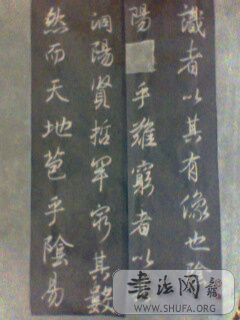 識者以其有像也陰
陽　乎難窮者以
洞陽賢哲罕窮其數
然而天地苞乎陰易
書法网
WWW.SHUFA.ORG